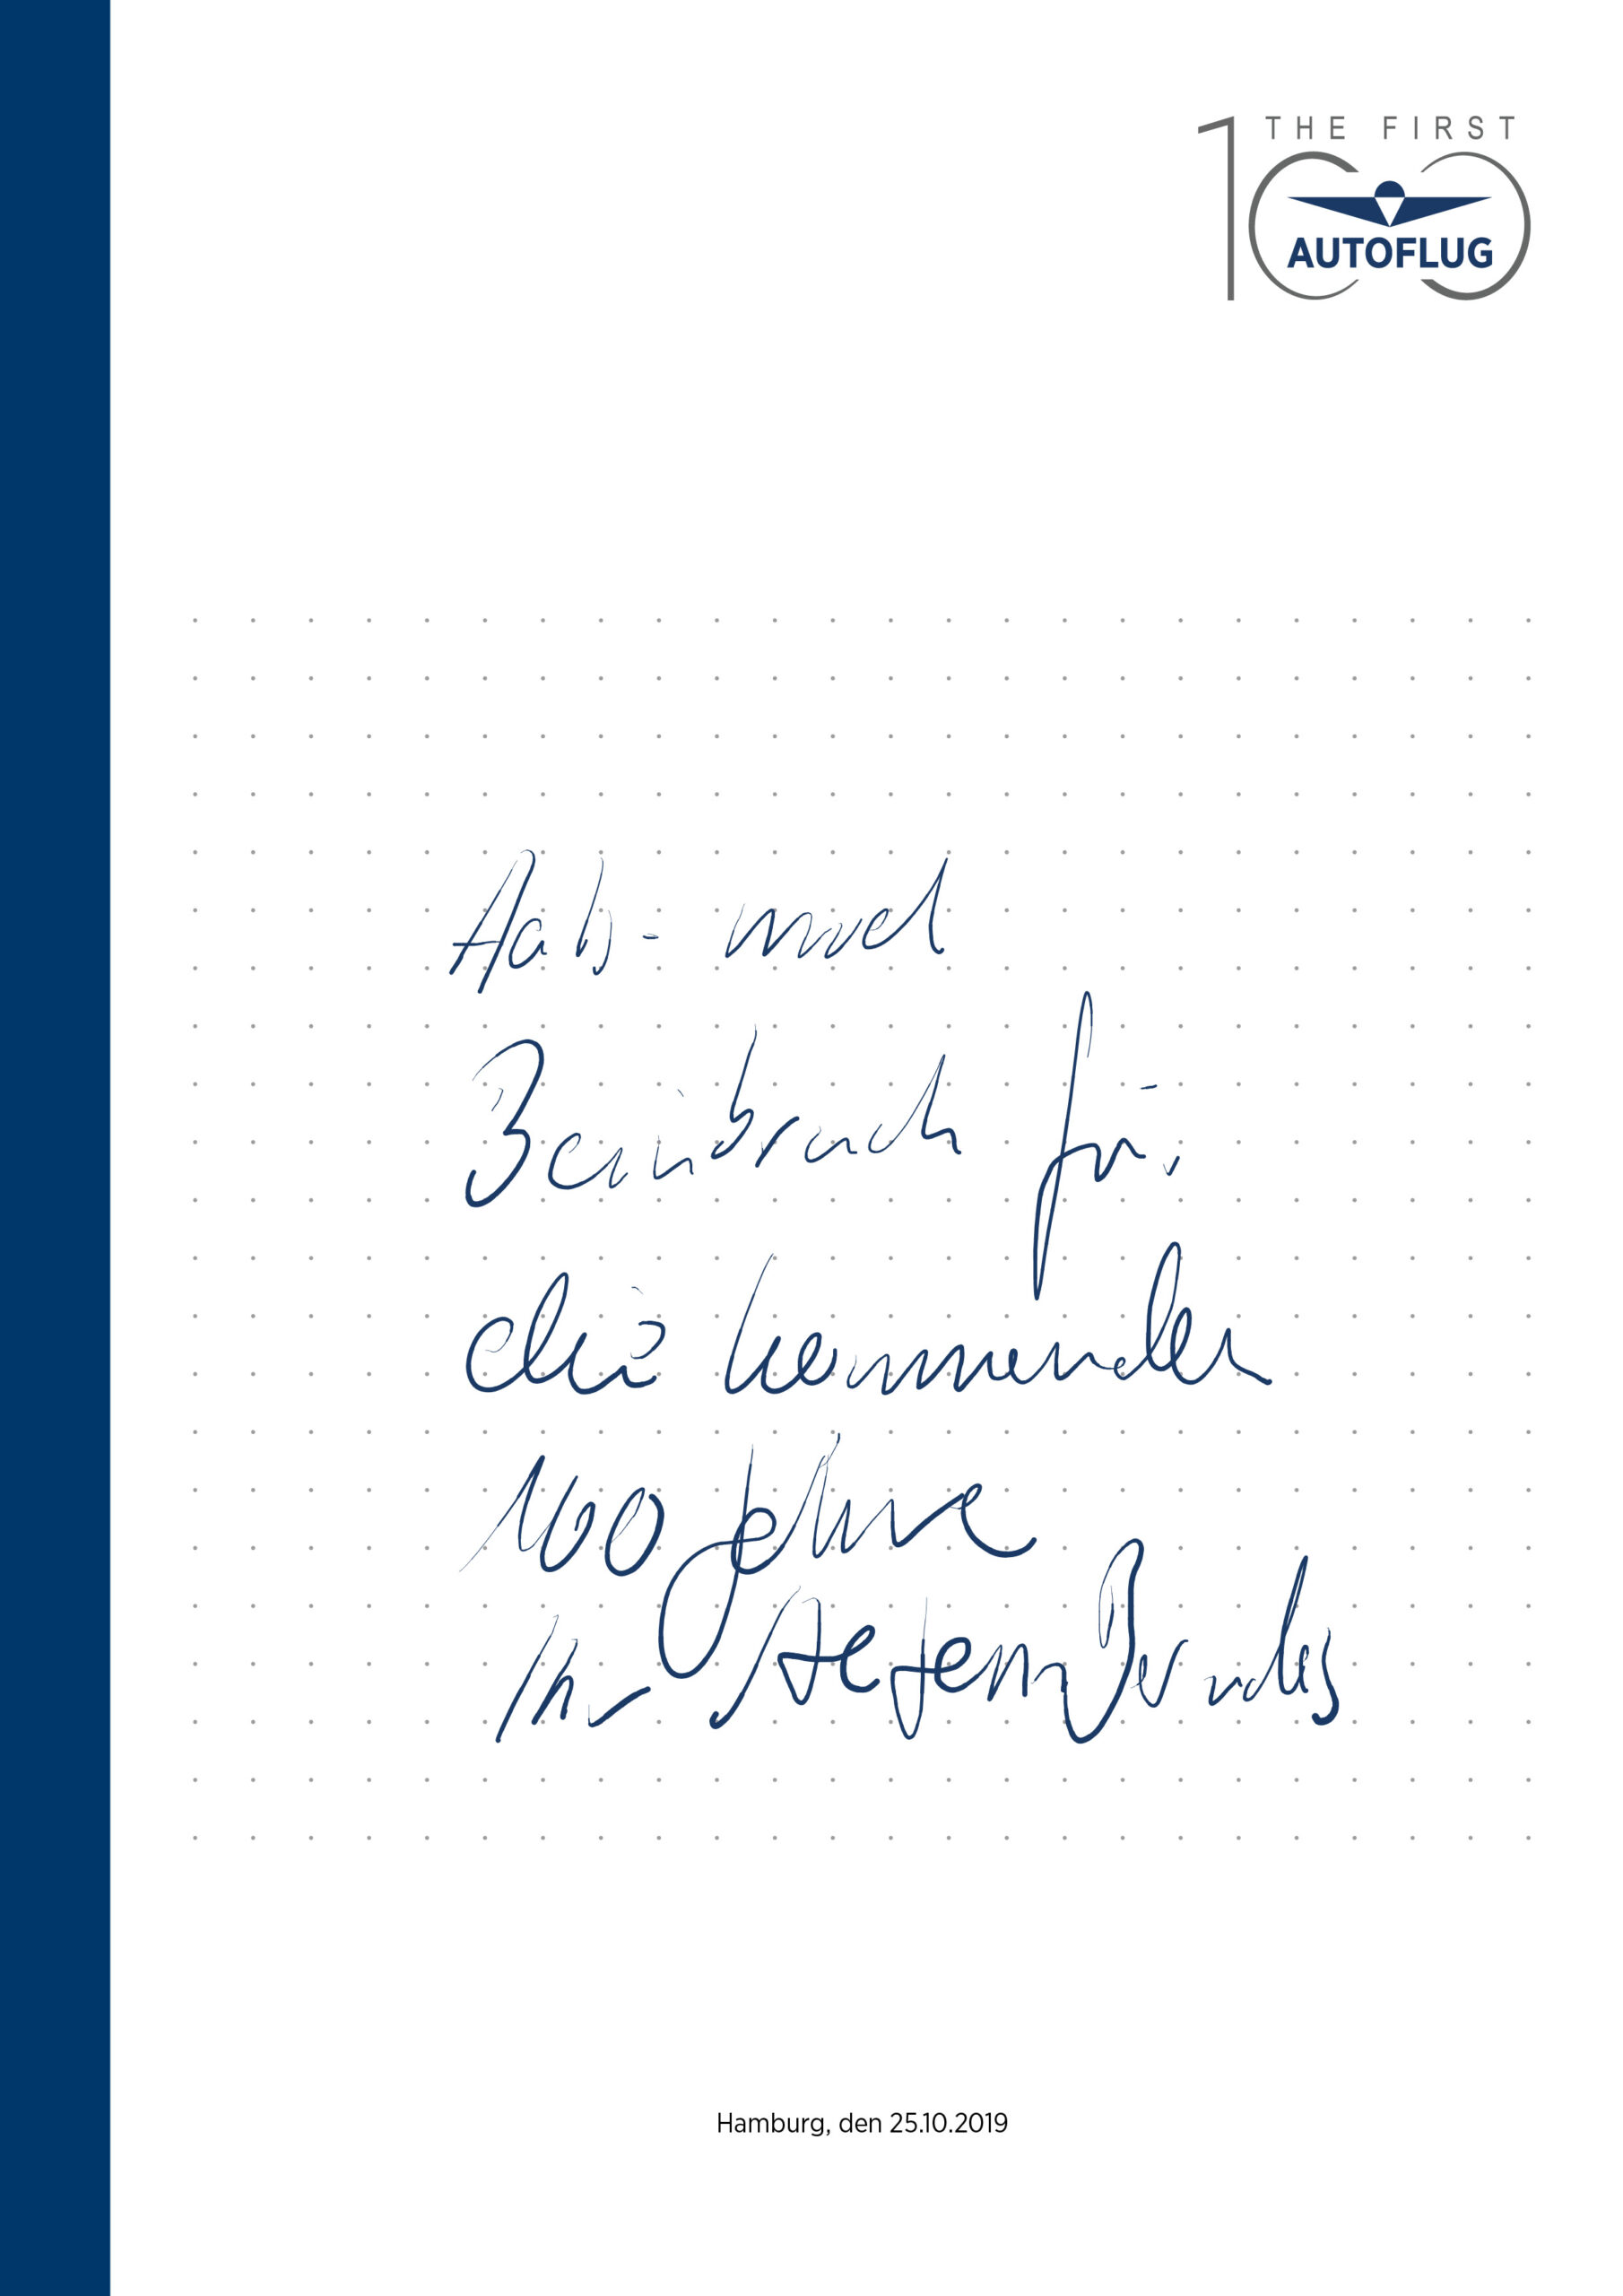 THE FIRST
100
AUTOFLUG
Hals- und
Beinbruch für
die kommenden
100 Jahre
Ihr Stefan
Hamburg, den 25.10.2019